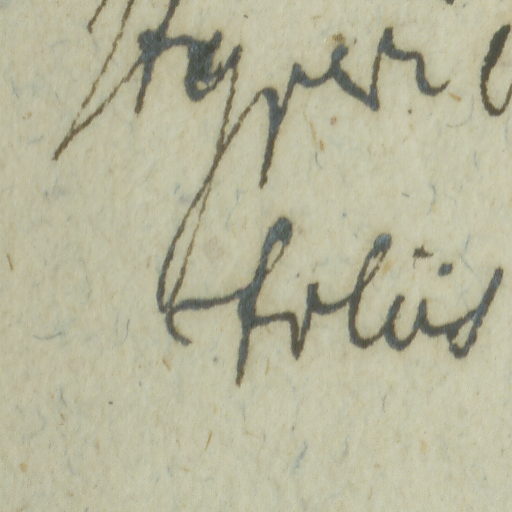 Hyperi
foliis